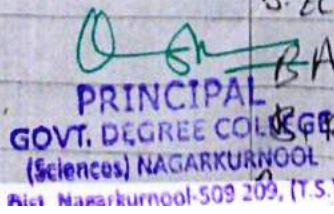 PRINCIPAL
GOVT. DEGREE COLLEGE
(Sciences) NAGARKURNOOL
Dist. Nagarkurnool-509 209, (T.S.)